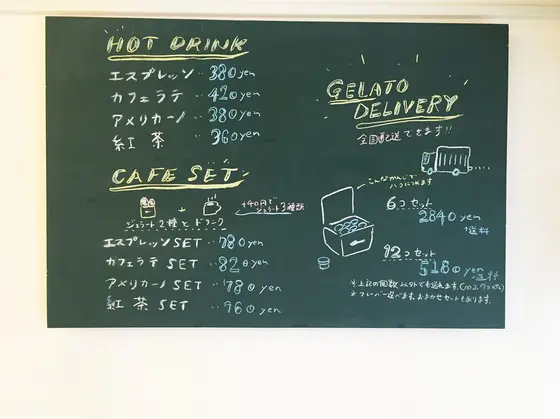 HOT DRINK
エスプレッソ ‥380yen
カフェラテ ‥420yen
アメリカーノ ‥380yen
紅茶 ‥360yen
CAFE SET
+
+40円でジェラート3種類
ジェラート2種とドリンク
エスプレッソSET ‥780yen
カフェラテSET ‥820yen
アメリカーノSET ‥780yen
紅茶SET ‥760yen
GELATO
DELIVERY
全国配送できます!!
こんなかんじで
ハコに入れます
6コセット
2840yen
+送料
12コセット
5180yen
+送料
※上記の個数以外でも送れます。
※フレーバー選べます。おまかせセットもあります。